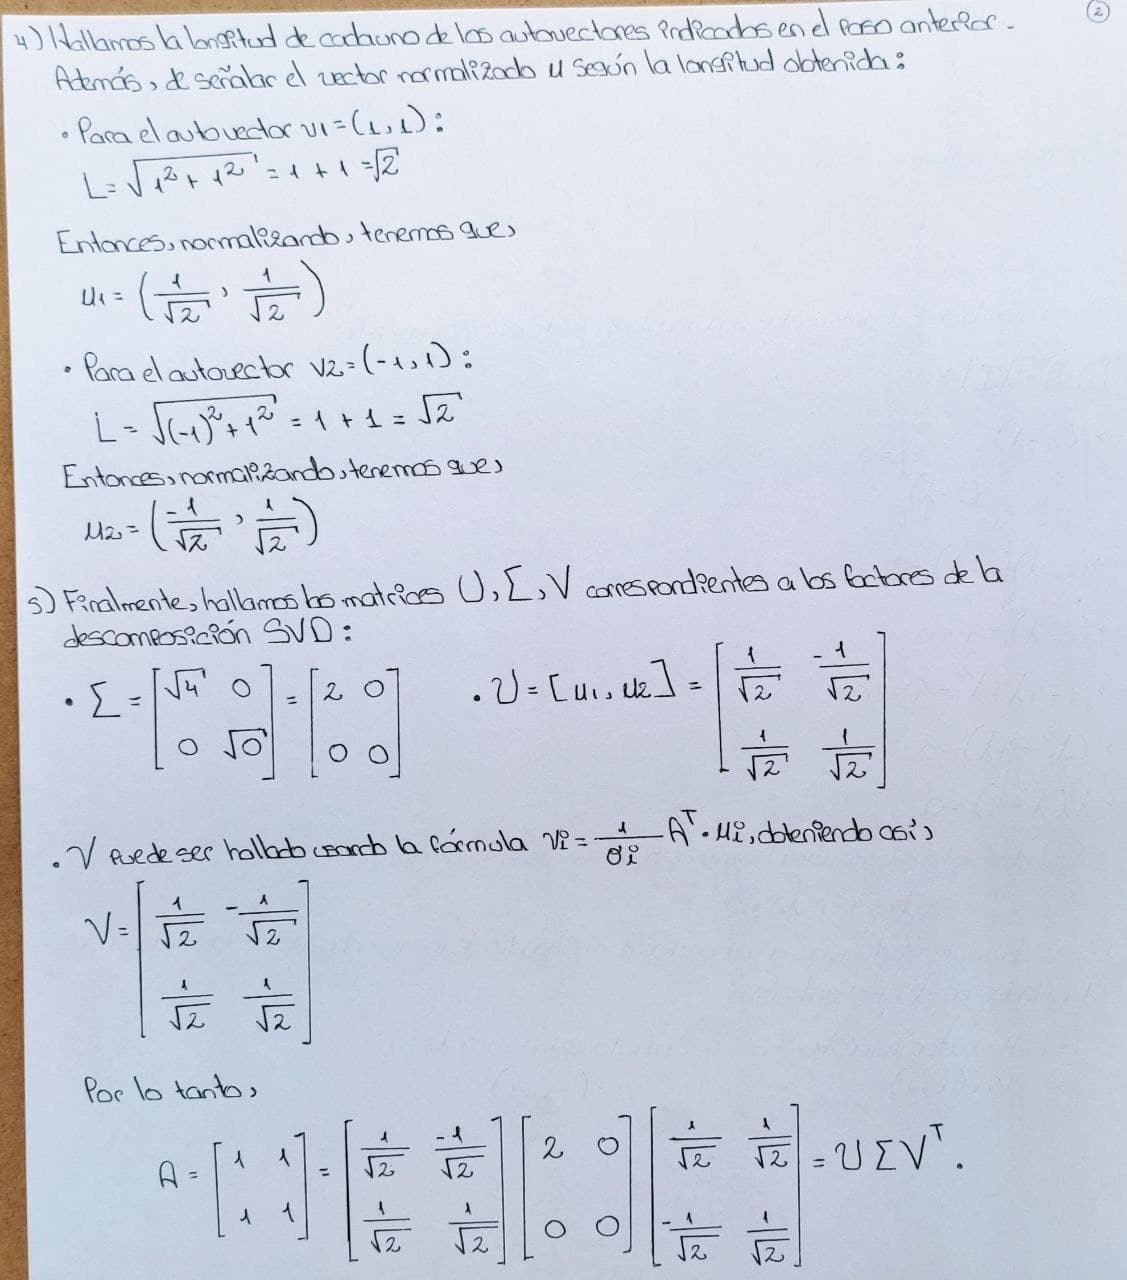 2
4) Hallamos la longitud de cada uno de los autovectores indicados en el paso anterior.
Además, de señalar el vector normalizado u según la longitud obtenida:
• Para el autovector v1 = (1, 1):
L = √(1² + 1²) = 1 + 1 = √2
Entonces, normalizando, tenemos que,
u1 = (1/√2, 1/√2)
• Para el autovector v2 = (-1, 1):
L = √((-1)² + 1²) = 1 + 1 = √2
Entonces, normalizando, tenemos que,
u2 = (-1/√2, 1/√2)
5) Finalmente, hallamos las matrices U, Σ, V correspondientes a los factores de la
descomposición SVD:
• Σ = [√4 0; 0 √0] = [2 0; 0 0] • U = [u1, u2] = [1/√2 -1/√2; 1/√2 1/√2]
• V puede ser hallado usando la fórmula vi = 1/σi A^T · ui, obteniendo así,
V = [1/√2 -1/√2; 1/√2 1/√2]
Por lo tanto,
A = [1 1; 1 1] = [1/√2 -1/√2; 1/√2 1/√2] [2 0; 0 0] [1/√2 1/√2; -1/√2 1/√2] = U Σ V^T.